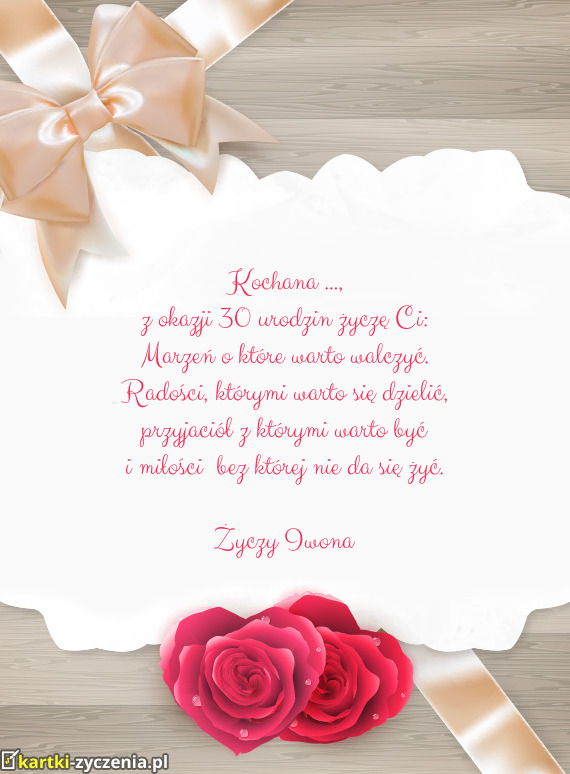 Kochana ...,
z okazji 30 urodzin życzę Ci:
Marzeń o które warto walczyć.
Radości, którymi warto się dzielić,
przyjaciół z którymi warto być
i miłości bez której nie da się żyć.
Życzy Iwona
kartki-zyczenia.pl